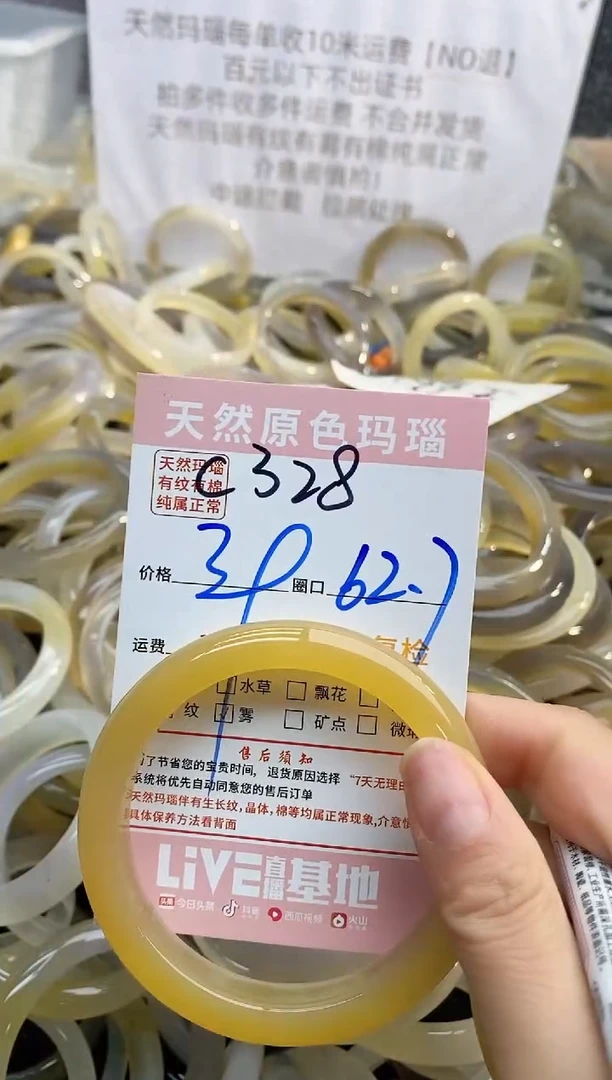 天然玛瑙每单收10米运费【NO退】
百元以下不出证书
拍多件收多件运费 不合并发货
天然玛瑙有纹有雾有棉纯属正常
介意慎拍!
天然原色玛瑙
天然玛瑙
有纹有棉
纯属正常
C328
价格 39 圈口 62.7
运费 复检
水草 飘花
纹 雾 矿点
售后须知
了节省您的宝贵时间，退货原因选择“7天无理由
系统将优先自动同意您的售后订单
天然玛瑙伴有生长纹,晶体,棉等均属正常现象,介意慎
具体保养方法看背面
LiVE直播基地
头条 今日头条 抖音 西瓜视频 火山